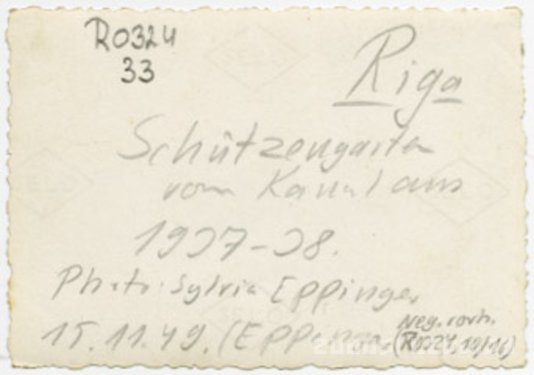 R0324
33
Riga
Schützengarten
vom Kanal aus
1937-38.
Photo: Sylvia Eppinger
15.11.49. (Eppinger
Neg. vorh.